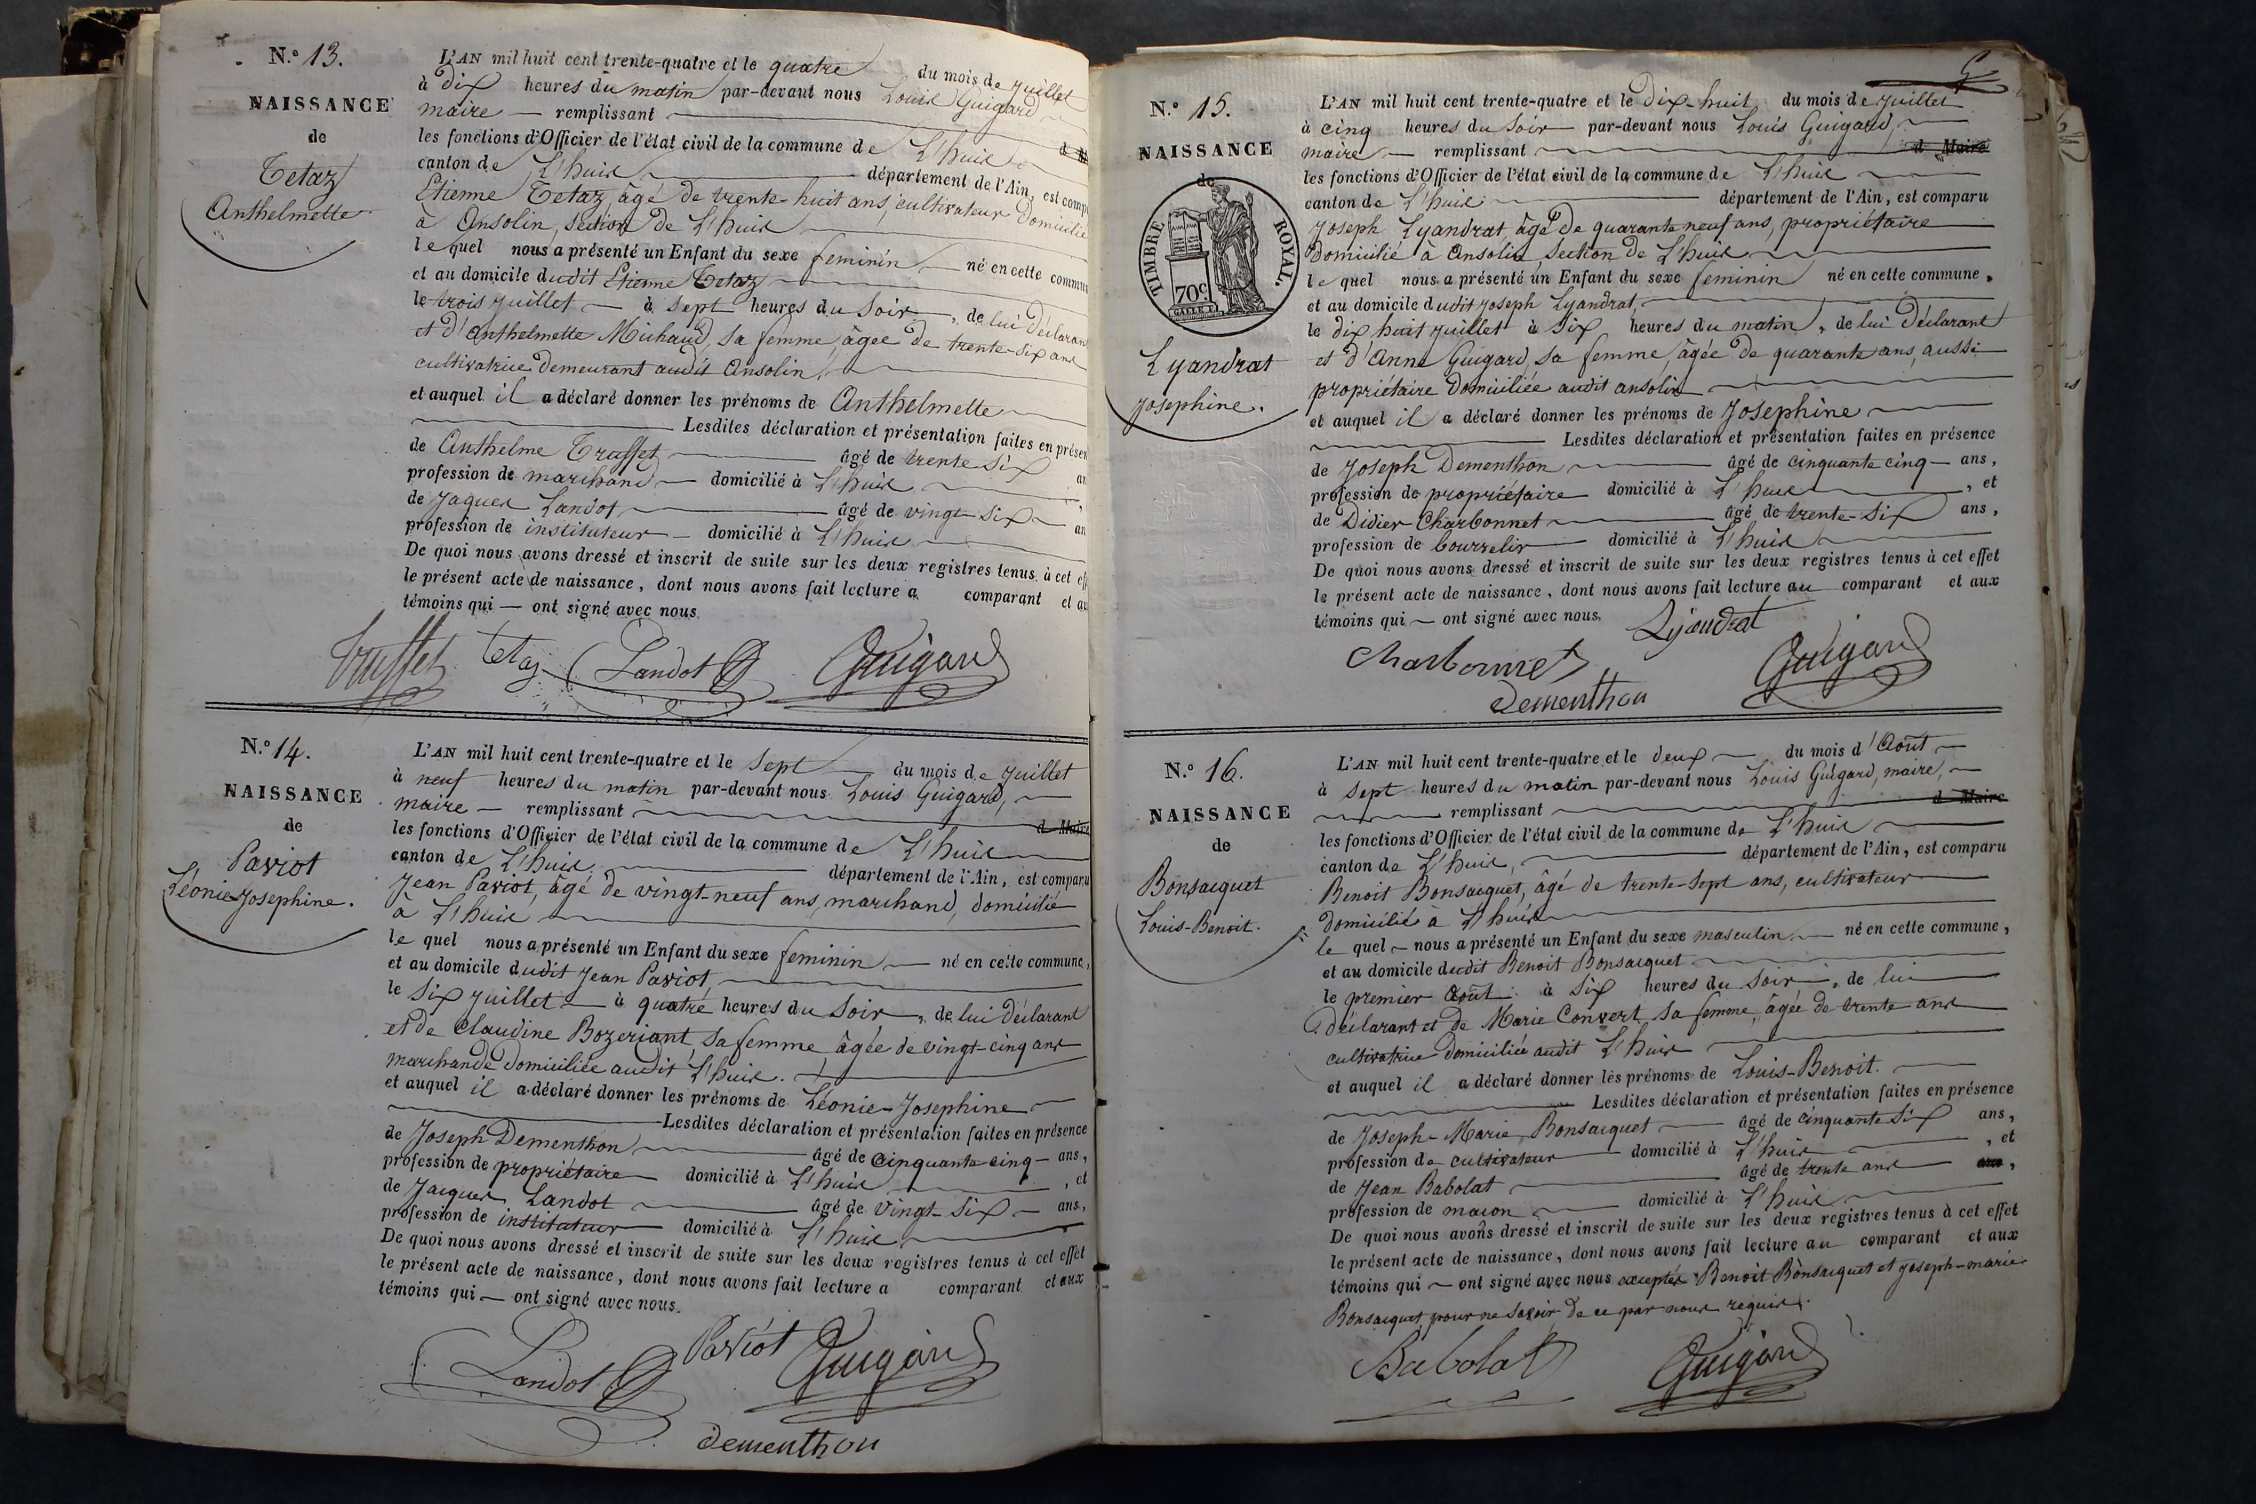 N.º 13.
NAISSANCE
de
Tetaz
Anthelmette.
L'AN mil huit cent trente-quatre et le quatre du mois de juillet
à dix heures du matin par-devant nous Louis Guigard
maire remplissant
les fonctions d'Officier de l'état civil de la commune de L'huis
canton de L'huis département de l'Ain, est comp
Etienne Tetaz, âgé de trente-huit ans, cultivateur domicilié
à Ansolin, section de L'huis
lequel nous a présenté un Enfant du sexe feminin né en cette commun
et au domicile dudit Etienne Tetaz
le trois juillet à sept heures du soir, de lui déclarant
et d'Anthelmette Michaud, sa femme âgée de trente-six ans
cultivatrice demeurant audit Ansolin
et auquel il a déclaré donner les prénoms de Anthelmette
Lesdites déclaration et présentation faites en présen
de Anthelme Truffet âgé de trente six an
profession de marchand domicilié à L'huis
de Jaques Landot âgé de vingt-six an
profession de instituteur domicilié à L'huis
De quoi nous avons dressé et inscrit de suite sur les deux registres tenus à cet eff
le présent acte de naissance, dont nous avons fait lecture a comparant et au
témoins qui ont signé avec nous
Truffet Tetaz Landot Guigard
N.º 14.
NAISSANCE
de
Paviot
Léonie-Josephine.
L'AN mil huit cent trente-quatre et le sept du mois de juillet
à neuf heures du matin par-devant nous Louis Guigard,
maire remplissant d Maire
les fonctions d'Officier de l'état civil de la commune de L'huis
canton de L'huis, département de l'Ain, est comparu
Jean Paviot, âgé de vingt-neuf ans, marchand, domicilié
à L'huis
le quel nous a présenté un Enfant du sexe feminin né en cette commune,
et au domicile dudit Jean Paviot,
le six juillet à quatre heures du soir, de lui déclarant
et de Claudine Bozeriant, sa femme âgée de vingt-cinq ans
marchande domiciliée audit L'huis.
et auquel il a déclaré donner les prénoms de Léonie-Josephine
Lesdites déclaration et présentation faites en présence
de Joseph Dementhon âgé de cinquante cinq ans,
profession de propriétaire domicilié à L'huis, et
de Jacques Landot âgé de vingt-six ans,
profession de instituteur domicilié à L'huis
De quoi nous avons dressé et inscrit de suite sur les deux registres tenus à cet effet
le présent acte de naissance, dont nous avons fait lecture a comparant et aux
témoins qui ont signé avec nous.
Landot Paviot Guigard
Dementhon
N.º 15.
NAISSANCE
de
TIMBRE ROYAL.
70c.
Lyandrat
Josephine.
L'AN mil huit cent trente-quatre et le dix-huit du mois de juillet
à cinq heures du soir par-devant nous Louis Guigard,
maire remplissant d Maire
les fonctions d'Officier de l'état civil de la commune de L'huis
canton de L'huis département de l'Ain, est comparu
Joseph Lyandrat âgé de quarante neuf ans, propriétaire
domicilié à Ansolin, section de L'huis
le quel nous a présenté un Enfant du sexe feminin né en cette commune,
et au domicile dudit Joseph Lyandrat,
le dix huit juillet à six heures du matin, de lui déclarant
et d'Anne Guigard, sa femme âgée de quarante ans, aussi
propriétaire domiciliée audit ansolin
et auquel il a déclaré donner les prénoms de Josephine
Lesdites déclaration et présentation faites en présence
de Joseph Dementhon âgé de cinquante cinq ans,
profession de propriétaire domicilié à L'huis, et
de Didier Charbonnet âgé de trente-six ans,
profession de bourrelir domicilié à L'huis
De quoi nous avons dressé et inscrit de suite sur les deux registres tenus à cet effet
le présent acte de naissance, dont nous avons fait lecture au comparant et aux
témoins qui ont signé avec nous. Lyandrat
Charbonnet Guigard
Dementhon
N.º 16.
NAISSANCE
de
Bonsacquet
Louis-Benoit.
L'AN mil huit cent trente-quatre et le deux du mois d'Août
à sept heures du matin par-devant nous Louis Guigard, maire,
remplissant d Maire
les fonctions d'Officier de l'état civil de la commune de L'huis
canton de L'huis, département de l'Ain, est comparu
Benoit Bonsacquet, âgé de trente-sept ans, cultivateur
domicilié à L'huis
le quel nous a présenté un Enfant du sexe masculin né en cette commune,
et au domicile dudit Benoit Bonsacquet
le premier Août à six heures du soir, de lui
déclarant et de Marie Convert sa femme, âgée de trente ans
cultivatrice domiciliée audit L'huis
et auquel il a déclaré donner les prénoms de Louis-Benoit.
Lesdites déclaration et présentation faites en présence
de Joseph-Marie Bonsacquet âgé de cinquante six ans,
profession de cultivateur domicilié à L'huis, et
de Jean Babolat âgé de trente ans ans,
profession de macon domicilié à L'huis
De quoi nous avons dressé et inscrit de suite sur les deux registres tenus à cet effet
le présent acte de naissance, dont nous avons fait lecture au comparant et aux
témoins qui ont signé avec nous exceptés Benoit Bonsacquet et Joseph-marie
Bonsacquet, pour ne savoir de ce par nous requis.
Babolat Guigard